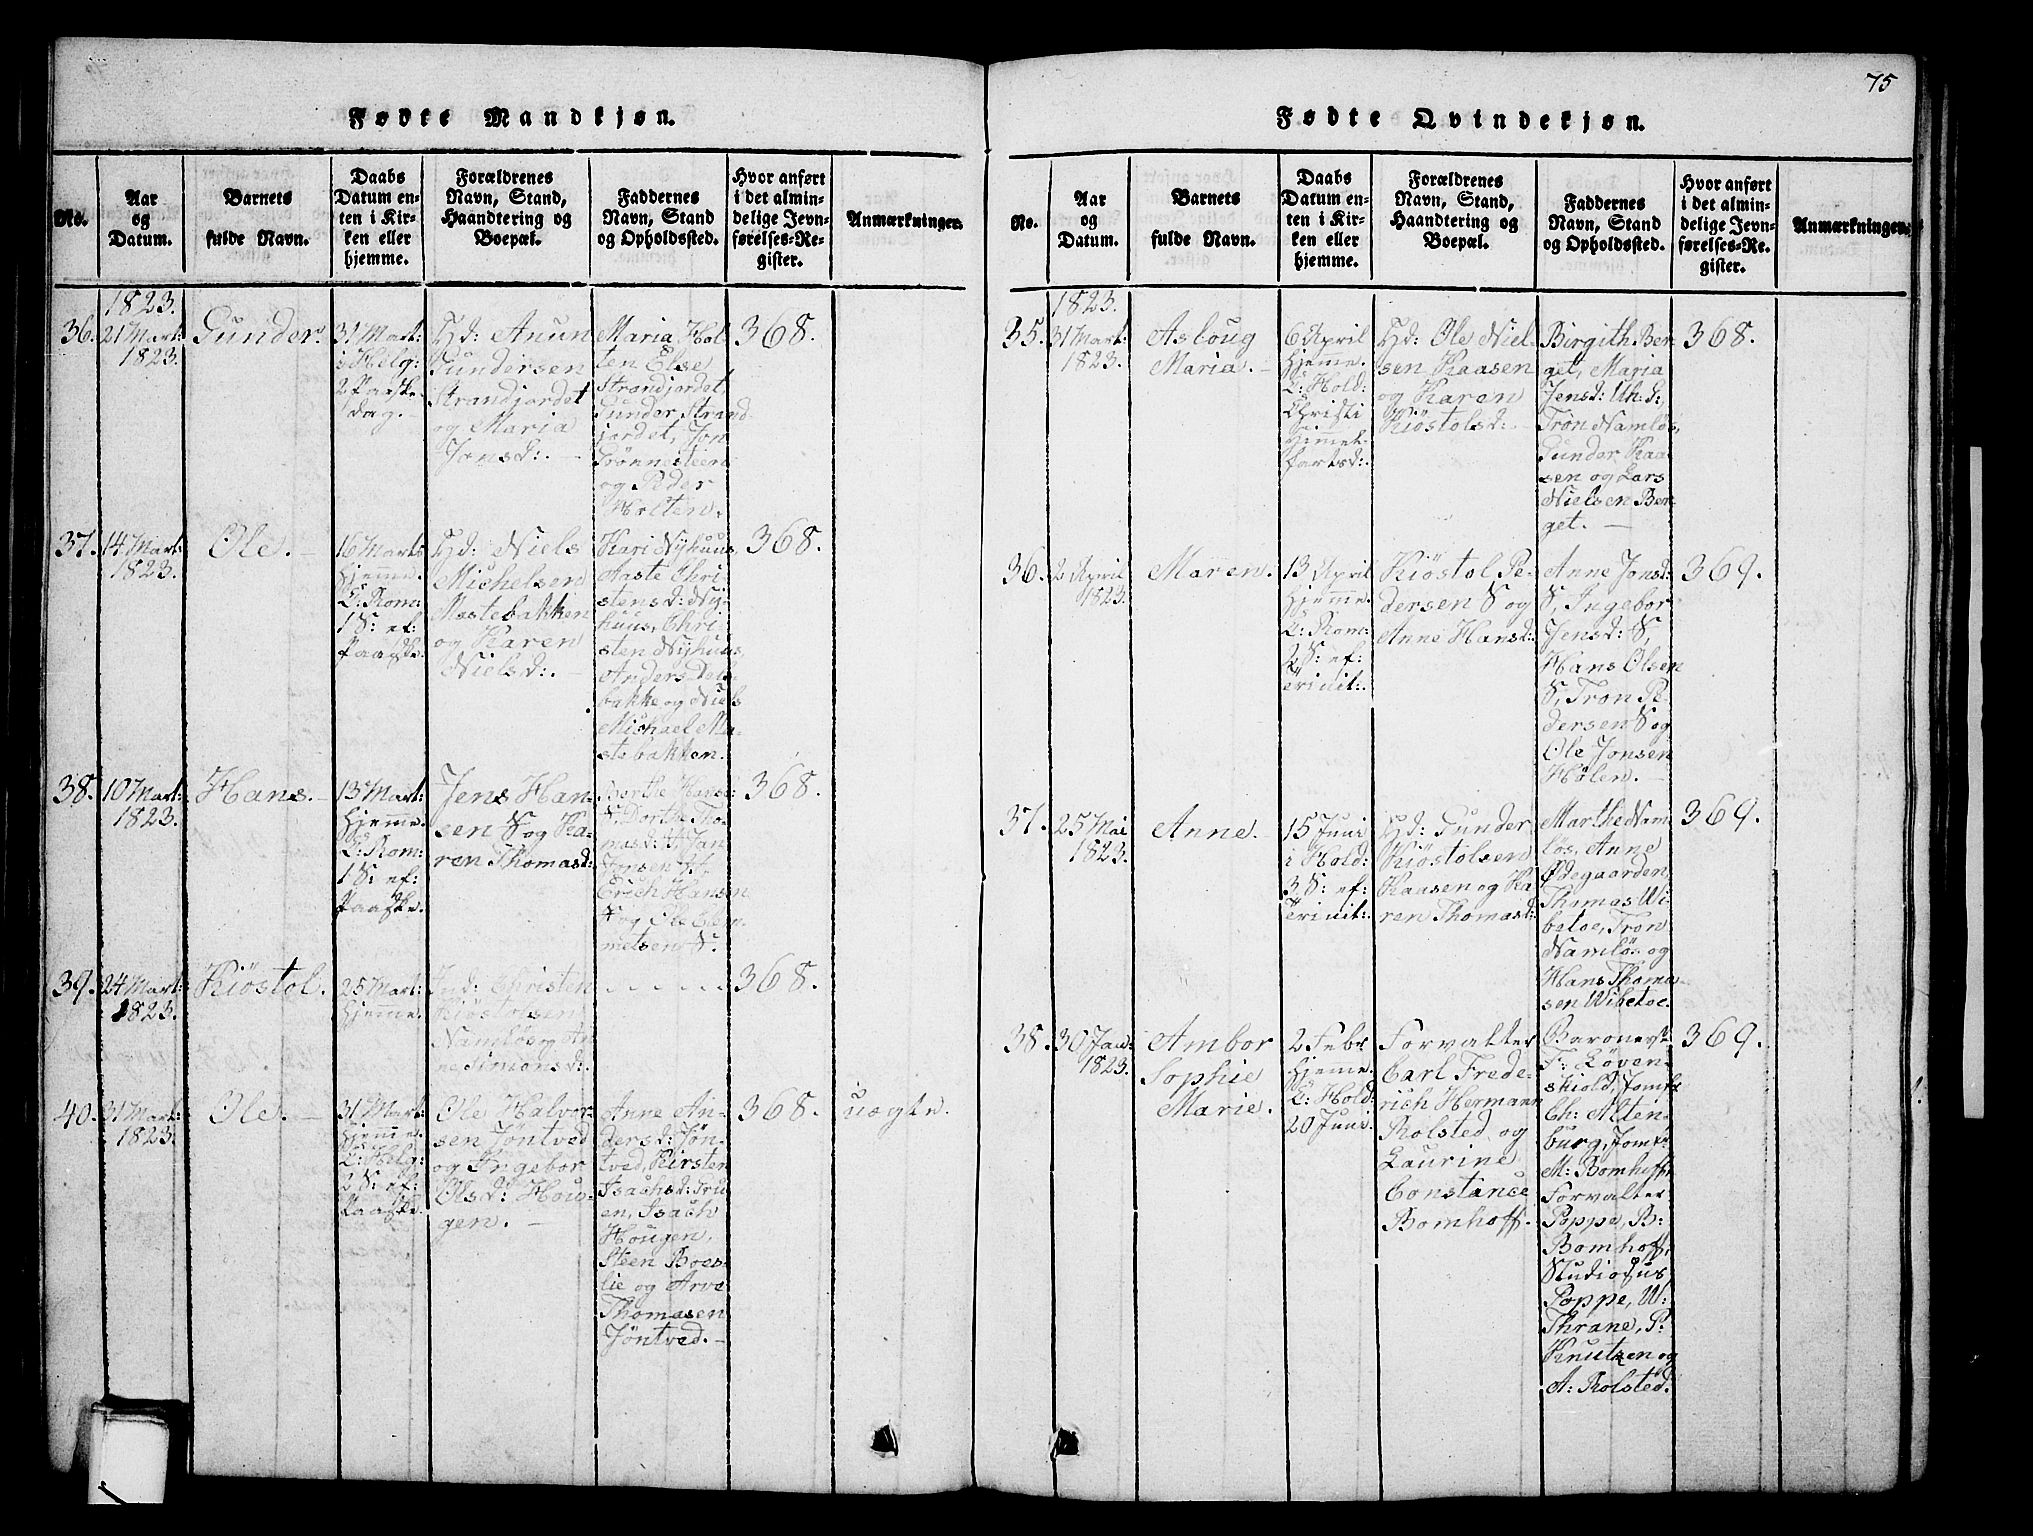 75
Fødte Mandkjøn.
No.
Aar
og
Datum.
Barnets
fulde Navn.
Daabs
Datum en-
ten i Kir-
ken eller
hjemme.
Forældrenes
Navn, Stand,
Haandtering og
Boepæl.
Faddernes
Navn, Stand
og Opholdssted.
Hvor anført
i det almin-
delige Jevn-
førelses-Re-
gister.
Anmærkninger.
1823.
36.
21 Mart:
1823.
Gunder.
31 Mart:
i Helg:
2 Paaske-
dag.
Hd: Anun
Gundersen
Strandjordet
og Maria
Jonsd:. –
Maria Hol
ten Else
Strandjordet,
Gunder Strand-
jordet, Jon
Trönnesteen
og Peder
Holten.
368.
37.
14 Mart:
1823.
Ole. –
16 Marts
hjemme.
C: Rom:
1 S: ef:
Paaske.
Hd: Niels
Michelsen
Mastebakken
og Karen
Nielsd:. –
Kari Nyhuus,
Aaste Chri-
stensd: Ny-
huus, Chri-
sten Nyhuus,
Anders Dal-
bakke og Niels
Michael Ma-
stebakken.
368.
38.
10 Mart:
1823.
Hans. –
13 Mart:
hjemme.
C: Rom:
1 S: ef:
Paaske.
Jens Han-
sen S og Ka-
ren Thomasd:
Berthe Hansd:
S, Dorthe Tho-
masd: H, Jan
Jonsen H,
Erich Hansen
S og Ole Clem-
metsen S.
368.
39.
24 Mart:
1823.
Kiöstol.
25 Mart:
hjemme.
Ind: Christen
Kiöstolsen
Namlös og An-
ne Simonsd:.
368.
40.
31 Mart:
1823.
Ole. –
31 Mart:
hjemme.
C: Helg:
2 S: ef:
Paaske.
Ole Halvor-
sen Jöntved
og Ingebor
Olsd: Hou-
gen. –
Anne An-
dersd: Jön-
tved, Kirsten
Isachsd: Tru-
en, Isach
Hougen,
Steen Boes-
lie og Arve
Thomasen
Jöntved. –
368.
uægte.
Fødte Qvindekjøn.
No.
Aar
og
Datum.
Barnets
fulde Navn.
Daabs
Datum en-
ten i Kir-
ken eller
hjemme.
Forældrenes
Navn, Stand,
Haandtering og
Boepæl.
Faddernes
Navn, Stand
og Opholdssted.
Hvor anført
i det almin-
delige Jevn-
førelses-Re-
gister.
Anmærkninger.
1823.
35.
31 Mart:
1823.
Asloug
Maria. –
6 April
hjemme.
C: Hold:
Christi
Himmel-
fartsd:.
Hd: Ole Niel-
sen Kaasen
og Karen
Kiöstolsd:
Birgith Ber-
get, Maria
Jensd:
Tron Namlös,
Gunder Kaa-
sen og Lars
Nielsen Ber-
get. –
368.
36.
2 April
1823.
Maren.
13 April
hjemme.
C: Rom:
2 S: ef:
Trinit:.
Kiöstol Pe-
dersen S og
Anne Hansd:
Anne Jonsd:
S, Ingebor
Jensd: S,
Hans Olsen
S, Tron Pe-
dersen S og
Ole Jonsen
Hölen. –
369.
37.
25 Mai
1823.
Anne. –
15 Juni
i Hold:
3 S: ef:
Trinit:.
Hd: Gunder
Kiöstolsen
Kaasen og Ka-
ren Thomasd:
Marthe Nam-
lös, Anne
Ødegaarden,
Thomas Wi-
betoe, Tron
Namlös og
Hans Thoma-
sen Wibetoe.
369.
38.
30 Jan:
1823.
Ambor
Sophie
Marie.
2 Febr
hjemme.
C: Hold:
20 Juni.
Forvalter
Carl Frede-
rich Hermann
Rolsted og
Laurine
Constance
Bomhoff.
Baronesse
F: Løven-
skiold, Jomfr
Ch: Alten-
burg, Jomfr
M: Bomhoff,
Forvalter
Poppe, B:
Bomhoff,
Studiosus
Poppe, W:
Thrane, P:
Knutzen og
A: Rolsted.
369.